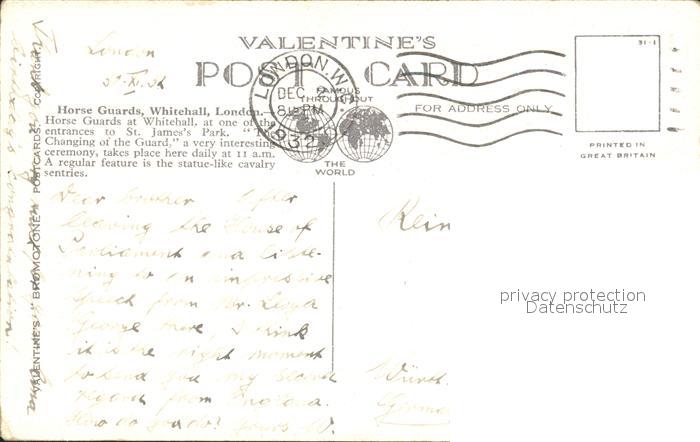 VALENTINE'S
POST CARD
FAMOUS THROUGHOUT
THE WORLD
LONDON. W.
DEC
8 PM
FOR ADDRESS ONLY
31-1
PRINTED IN
GREAT BRITAIN
London
Horse Guards, Whitehall, London.—
Horse Guards at Whitehall, at one of the
entrances to St. James's Park. "The
Changing of the Guard," a very interesting
ceremony, takes place here daily at 11 a.m.
A regular feature is the statue-like cavalry
sentries.
"VALENTINE'S" "BROMOTONE" POSTCARDS COPYRIGHT
Dear brother After
leaving the House of
Parliament and liste-
ning to an impressive
speech from Mr. Lloyd
George there, I think
it is the right moment
to send you my second
regard from England.
How do you do? Yours W.
Rein
Württ.
Germa
privacy protection
Datenschutz